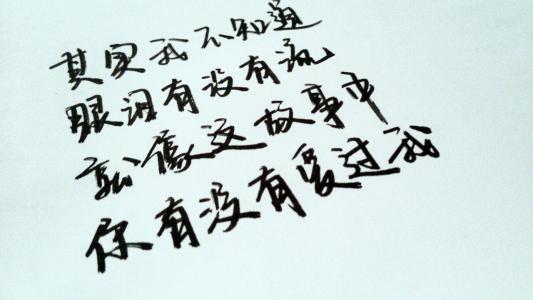 其实我不知道
眼泪有没有流
就像这故事中
你有没有爱过我